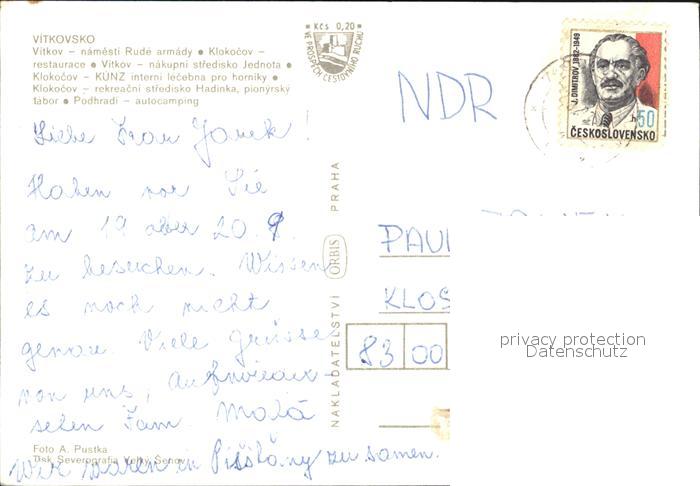 VÍTKOVSKO
Vítkov – náměstí Rudé armády ● Klokočov –
restaurace ● Vítkov – nákupní středisko Jednota ●
Klokočov – KÚNZ interní léčebna pro horníky ●
Klokočov – rekreační středisko Hadinka, pionýrský
tábor ● Podhradí – autocamping
Kčs 0,20
VE PROSPĚCH CESTOVNÍHO RUCHU
J. DIMITROV 1882-1949
50 h
ČESKOSLOVENSKO
NDR
Liebe Frau Janek
Haben vor Sie
am 19 oder 20. 9.
zu besuchen. Wissen
es noch nicht
genau. Viele Grüsse
von uns, aufwieder-
sehen Fam. Malá
Wir waren in Pišťány zusamen.
PAUL
KLOS
83 00
NAKLADATELSTVÍ ORBIS PRAHA
Foto A. Pustka
Tisk Severografia Velký Šenov
privacy protection
Datenschutz